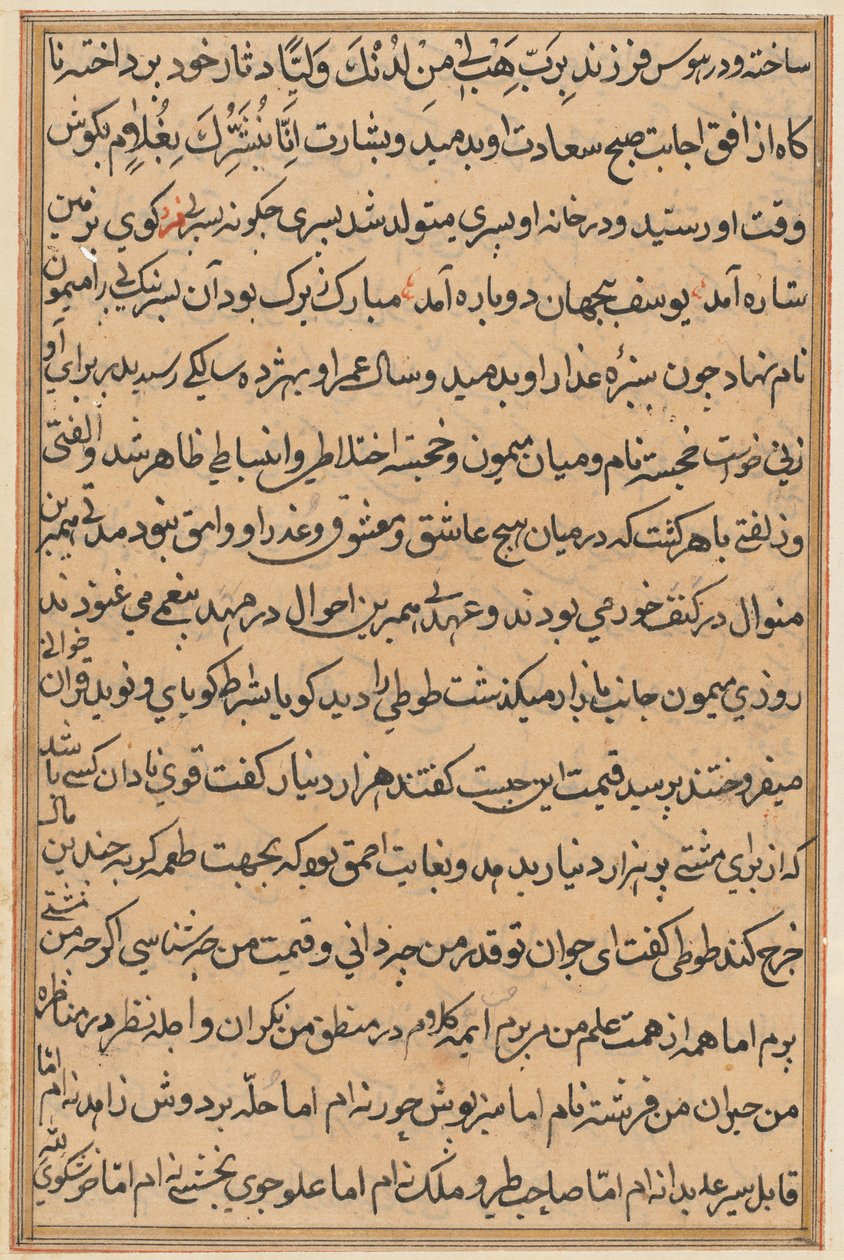 ساخته و در هوس فرزند بِرَبّ هَبْ لِیْ مِنْ لَدُنْكَ وَلِیًّا دثار خود بر داخته نا
کاه از افق اجابت صبح سعادت او بدمید و بشارت اِنَّا نُبَشِّرُكَ بِغُلَامٍ بکوش
وقت او رسید و در خانه او پسری متولد شد پسری جکونه پسری فرد کوی زمین
ستاره آمد یوسف بجهان دوباره آمد مبارک بزرک بود آن پسر نیک پی را میمون
نام نهاد جون سبزه عذار او بدمید و سال عمر او بهژده سالکی رسید پدر برای او
زنی خواست خجسته نام و میان میمون و خجسته اختلاطی و انبساطی ظاهر شد و الفتی
و زلفتی باهر کشت که در میان هیج عاشق و معشوق و عذرا و وامق نبود مدتی همبرین
منوال در کنف خورمی بودند و عهدی همبرین احوال در مهد تنعم می غنودند
روزی میمون جانب بازار میکذشت طوطی را دید کویا بشرایط کویای و نوید قران خوانی
میفروختند پرسید قیمت این جیست کفتند هزار دینار کفت قوی نادان کسی باشد
که از برای مشتی پر هزار دینار بدهد و بغایت احمق بود که بجهت طعمه کربه جندین مال
خرج کند طوطی کفت ای جوان تو قدر من جه دانی و قیمت من جه شناسی اکرجه من مشتی
پرم اما همه از همت علم من بر پرم ایمه کلام در منطق من نکران و اجله نظر در مناظره
من حیران من فرشته نام اما سبز پوش حور نه ام اما حلّه بر دوش زاهد نه ام امّا
قابل سیر عابد نه ام امّا صاحب طیر و ملک نه ام اما علو جوی بخشی نه ام امّا خوشکوی